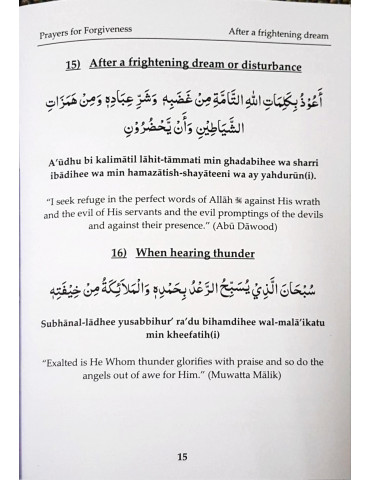 Prayers for Forgiveness
After a frightening dream
15) After a frightening dream or disturbance
أَعُوْذُ بِكَلِمَاتِ اللهِ التَّامَّةِ مِنْ غَضَبِهٖ وَشَرِّ عِبَادِهٖ وَمِنْ هَمَزَاتِ
الشَّيَاطِيْنِ وَأَنْ يَّحْضُرُوْنِ
A'ūdhu bi kalimātil lāhit-tāmmati min ghadabihee wa sharri
ibādihee wa min hamazātish-shayāteeni wa ay yahdurūn(i).
"I seek refuge in the perfect words of Allāh ﷻ against His wrath
and the evil of His servants and the evil promptings of the devils
and against their presence." (Abū Dāwood)
16) When hearing thunder
سُبْحَانَ الَّذِيْ يُسَبِّحُ الرَّعْدُ بِحَمْدِهٖ وَالْمَلَائِكَةُ مِنْ خِيْفَتِهٖ
Subhānal-lādhee yusabbihur' ra'du bihamdihee wal-malā'ikatu
min kheefatih(i)
"Exalted is He Whom thunder glorifies with praise and so do the
angels out of awe for Him." (Muwatta Mālik)
15